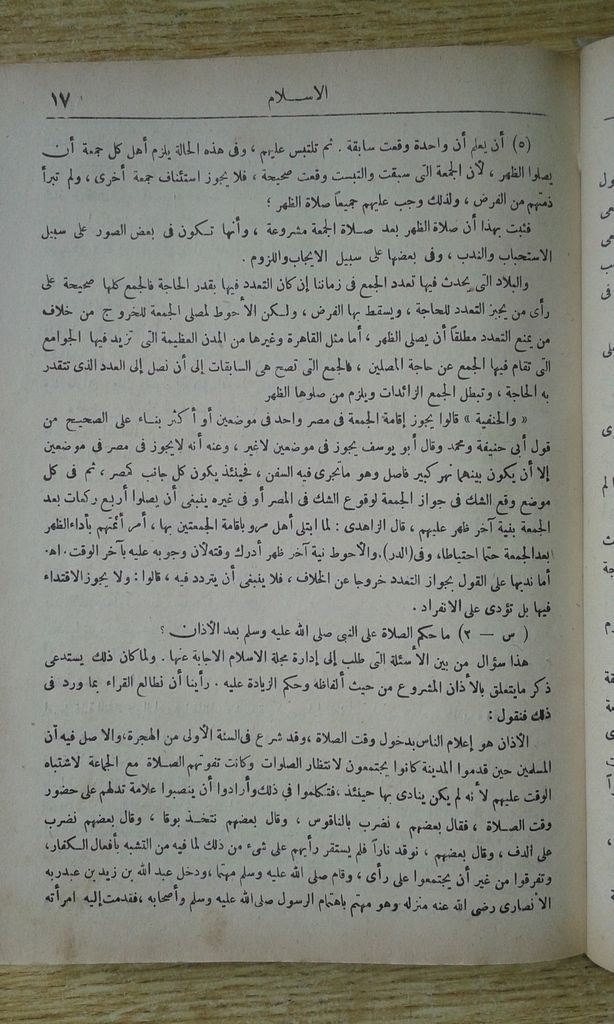 الاسلام ١٧
(٥) أن يعلم أن واحدة وقعت سابقة . ثم تلتبس عليهم ، وفى هذه الحالة يلزم أهل كل جمعة أن
يصلوا الظهر ، لأن الجمعة التى سبقت والتبست وقعت صحيحة ، فلا يجوز استئناف جمعة أخرى ، ولم تبرأ
ذمتهم من الفرض ، ولذلك وجب عليهم جميعاً صلاة الظهر ؛
فثبت بهذا أن صلاة الظهر بعد صلاة الجمعة مشروعة ، وأنها تكون فى بعض الصور على سبيل
الاستحباب والندب ، وفى بعضها على سبيل الايجاب واللزوم .
والبلاد التى يحدث فيها تعدد الجمع فى زماننا إن كان التعدد فيها بقدر الحاجة فالجمع كلها صحيحة على
رأى من يجيز التعدد للحاجة ، ويسقط بها الفرض ، ولكن الأحوط لمصلى الجمعة للخروج من خلاف
من يمنع التعدد مطلقاً أن يصلى الظهر ، أما مثل القاهرة وغيرها من المدن العظيمة التى تزيد فيها الجوامع
التى تقام فيها الجمع عن حاجة المصلين ، فالجمع التى تصح هى السابقات إلى أن نصل إلى العدد الذى تتقدر
به الحاجة ، وتبطل الجمع الزائدات ويلزم من صلوها الظهر
« والحنفية » قالوا يجوز إقامة الجمعة فى مصر واحد فى موضعين أو أكثر بناء على الصحيح من
قول أبى حنيفة ومحمد وقال أبو يوسف يجوز فى موضعين لاغير ، وعنه أنه لايجوز فى مصر فى موضعين
إلا أن يكون بينهما نهر كبير فاصل وهو ماتجرى فيه السفن ، فحينئذ يكون كل جانب كمصر ، ثم فى كل
موضع وقع الشك فى جواز الجمعة لوقوع الشك فى المصر أو فى غيره ينبغى أن يصلوا أربع ركعات بعد
الجمعة بنية آخر ظهر عليهم ، قال الزاهدى : لما ابتلى أهل مرو باقامة الجمعتين بها ، أمر أئمتهم بأداء الظهر
بعد الجمعة حتما احتياطا، وفى (الدر)، والأحوط نية آخر ظهر أدرك وقته لأن وجوبه عليه بآخر الوقت . اه.
أما ندبها على القول بجواز التعدد خروجا عن الخلاف ، فلا ينبغى أن يتردد فيه ، قالوا : ولا يجوز الاقتداء
فيها بل تؤدى على الانفراد .
( س — ٢ ) ما حكم الصلاة على النبى صلى الله عليه وسلم بعد الآذان ؟
هذا سؤال من بين الأسئلة التى طلب إلى إدارة مجلة الاسلام الاجابة عنها . ولما كان ذلك يستدعى
ذكر مايتعلق بالأذان المشروع من حيث ألفاظه وحكم الزيادة عليه . رأينا أن نطالع القراء بما ورد فى
ذلك فنقول :
الأذان هو إعلام الناس بدخول وقت الصلاة ، وقد شرع فى السنة الأولى من الهجرة، والاصل فيه أن
المسلمين حين قدموا المدينة كانوا يجتمعون لانتظار الصلوات وكانت تفوتهم الصلاة مع الجماعة لاشتباه
الوقت عليهم لأنه لم يكن ينادى بها حينئذ ، فتكلموا فى ذلك وأرادوا أن ينصبوا علامة تدلهم على حضور
وقت الصلاة ، فقال بعضهم ، نضرب بالناقوس ، وقال بعضهم نتخذ بوقا ، وقال بعضهم نضرب
على الدف ، وقال بعضهم ، نوقد ناراً فلم يستقر رأيهم على شىء من ذلك لما فيه من التشبه بأفعال الكفار،
وتفرقوا من غير أن يجتمعوا على رأى ، وقام صلى الله عليه وسلم مهتما ، ودخل عبد الله بن زيد بن عبد ربه
الأنصارى رضى الله عنه منزله وهو مهتم باهتمام الرسول صلى الله عليه وسلم وأصحابه ، فقدمت إليه امرأته